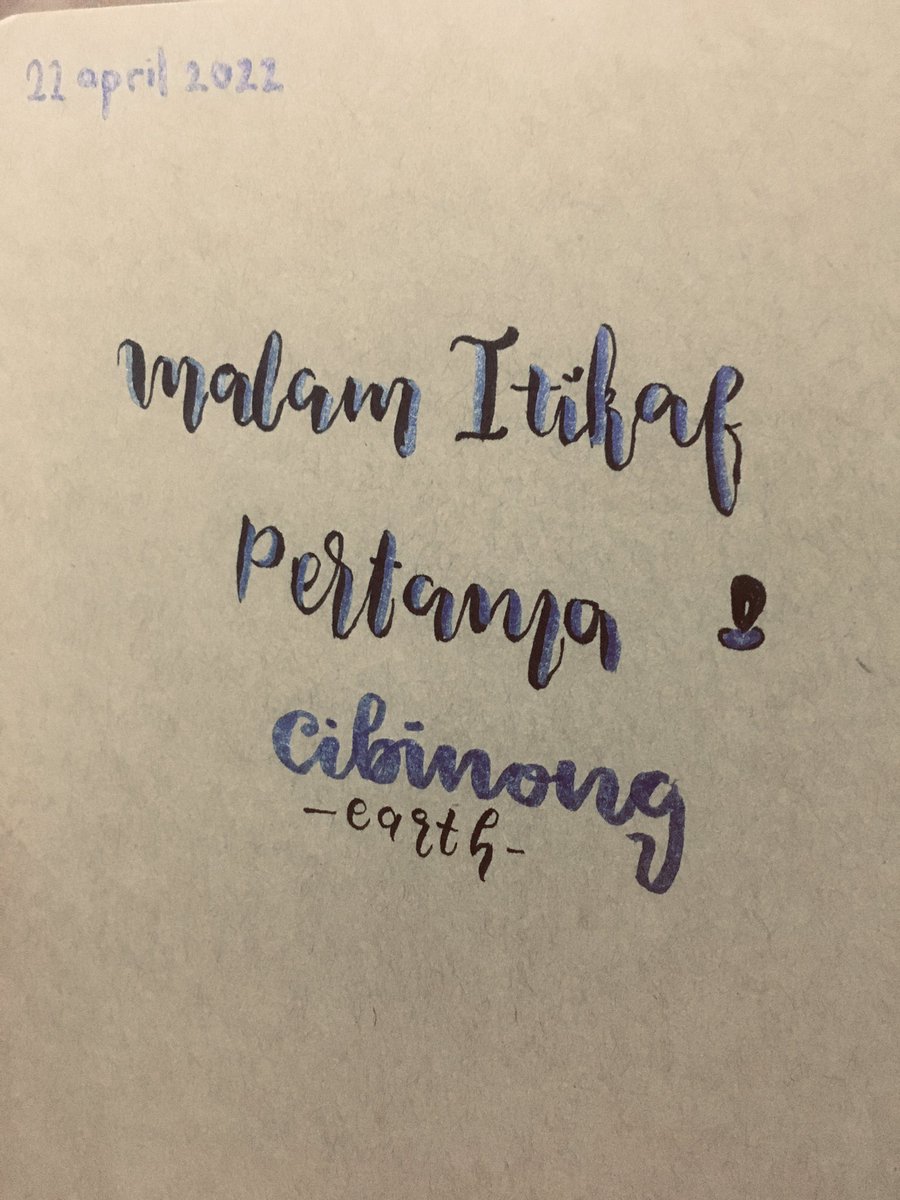 22 april 2022
Malam Itikaf
Pertama
Cibinong
-earth-